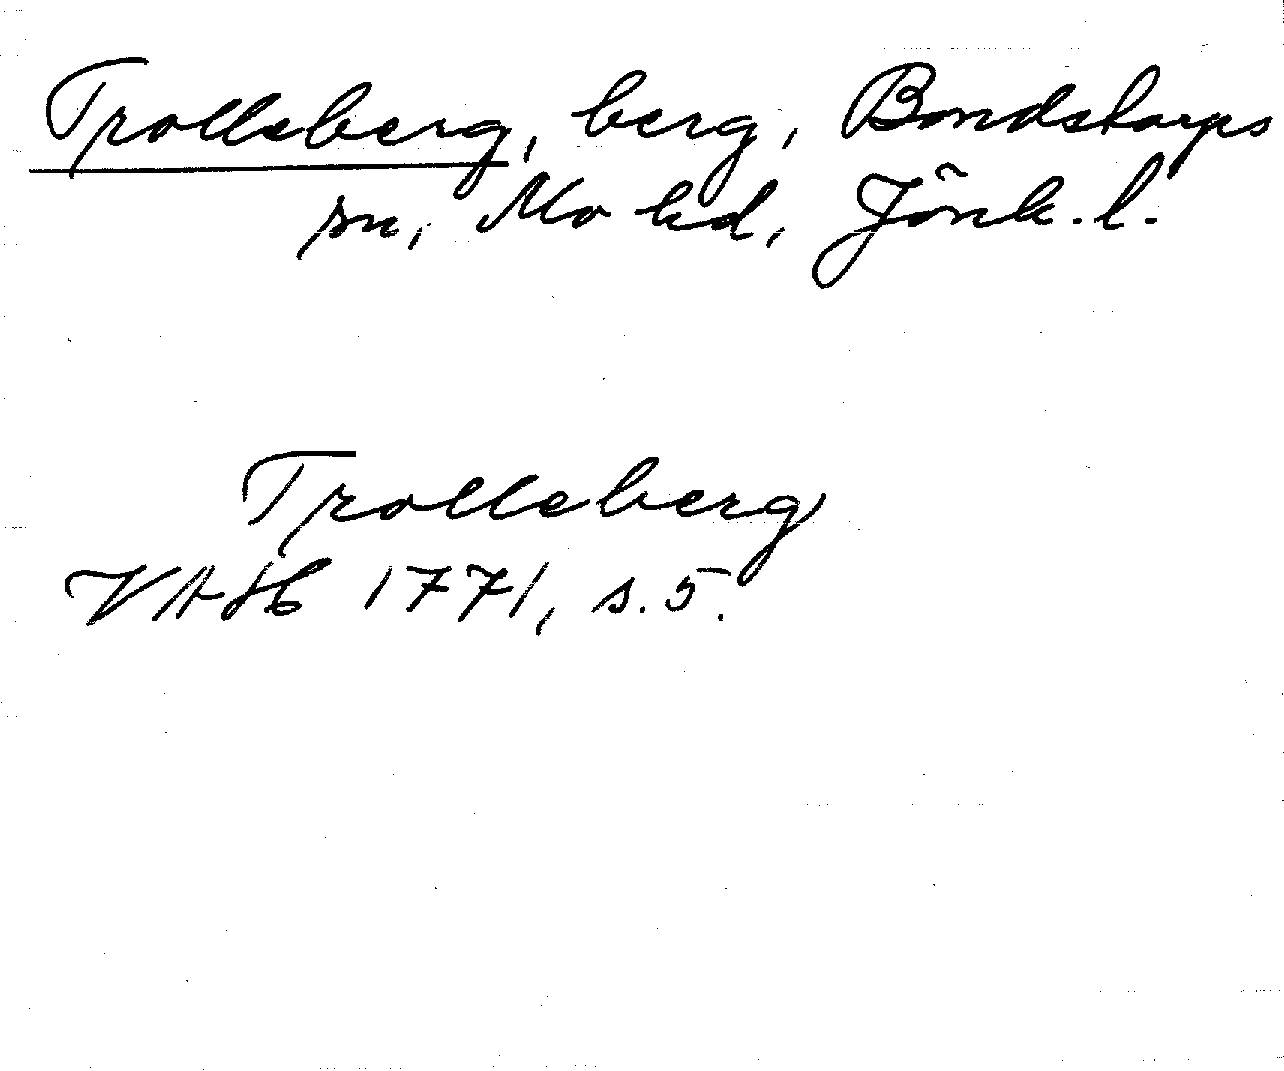 Trolleberg, berg, Bondstorps
sn, Mo hd, Jönk. l.
Trolleberg
VAH 1771, s. 5.